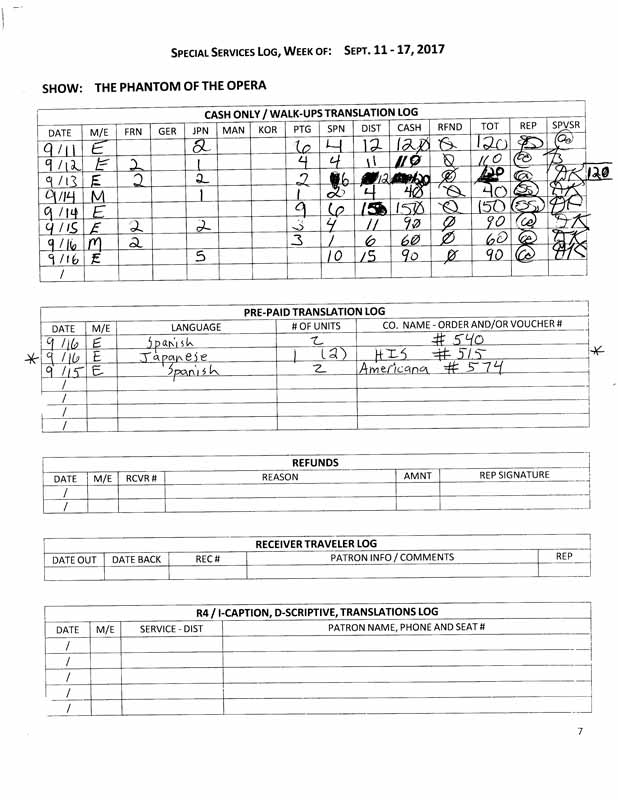 SPECIAL SERVICES LOG, WEEK OF: SEPT. 11 - 17, 2017
SHOW: THE PHANTOM OF THE OPERA
CASH ONLY / WALK-UPS TRANSLATION LOG
DATE M/E FRN GER JPN MAN KOR PTG SPN DIST CASH RFND TOT REP SPVSR
9/11 E 2 6 4 12 120 0 120
9/12 E 2 1 4 4 11 110 0 110
9/13 E 2 2 2 6 12 120 0 120 AK 120
9/14 M 1 1 2 4 40 0 40
9/14 E 9 6 15 150 0 150
9/15 E 2 2 3 4 11 90 0 90
9/16 M 2 3 1 6 60 0 60
9/16 E 5 10 15 90 0 90
/
PRE-PAID TRANSLATION LOG
DATE M/E LANGUAGE # OF UNITS CO. NAME - ORDER AND/OR VOUCHER #
9/16 E Spanish 2 # 540
* 9/16 E Japanese 1 (2) HIS # 515 *
9/15 E Spanish 2 Americana # 574
/
/
/
/
REFUNDS
DATE M/E RCVR # REASON AMNT REP SIGNATURE
/
/
RECEIVER TRAVELER LOG
DATE OUT DATE BACK REC # PATRON INFO / COMMENTS REP
R4 / I-CAPTION, D-SCRIPTIVE, TRANSLATIONS LOG
DATE M/E SERVICE - DIST PATRON NAME, PHONE AND SEAT #
/
/
/
/
/
7